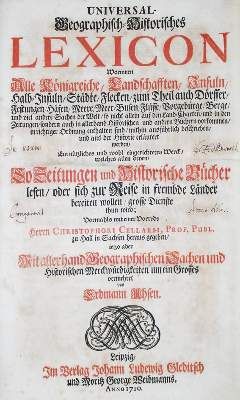 UNIVERSAL-
Geographisch-Historisches
LEXICON
Worinnen
Alle Königreiche, Landschafften, Insuln,
Halb-Insuln, Städte, Flecken, zum Theil auch Dörffer,
Festungen, Häfen, Meere, Meer-Busen, Flüsse, Vorgebürge, Berge,
und viel andere Sachen der Welt, so nicht allein auf den Land-Charten und in den
Zeitungen sondern auch in allerhand Historischen und andern Büchern vorkommen,
in richtiger Ordnung enthalten sind, mithin ausführlich beschrieben,
und aus der Historie erläutert
werden,
Ein nützliches und wohl eingerichtetes Werck,
welches allen denen,
So Zeitungen und Historische Bücher
lesen, oder sich zur Reise in frembde Länder
bereiten wollen, grosse Dienste
thun wird,
Vormahls unter der Vorrede
Herrn CHRISTOPHORI CELLARII, PROF. PUBL.
zu Hall in Sachsen heraus gegeben,
itzo aber
Mit allerhand Geographischen Sachen und
Historischen Merckwürdigkeiten um ein Grosses
vermehret
von
Erdmann Uhsen.
Leipzig,
Im Verlag Johann Ludewig Gleditsch
und Moritz George Weidmanns,
ANNO 1710.